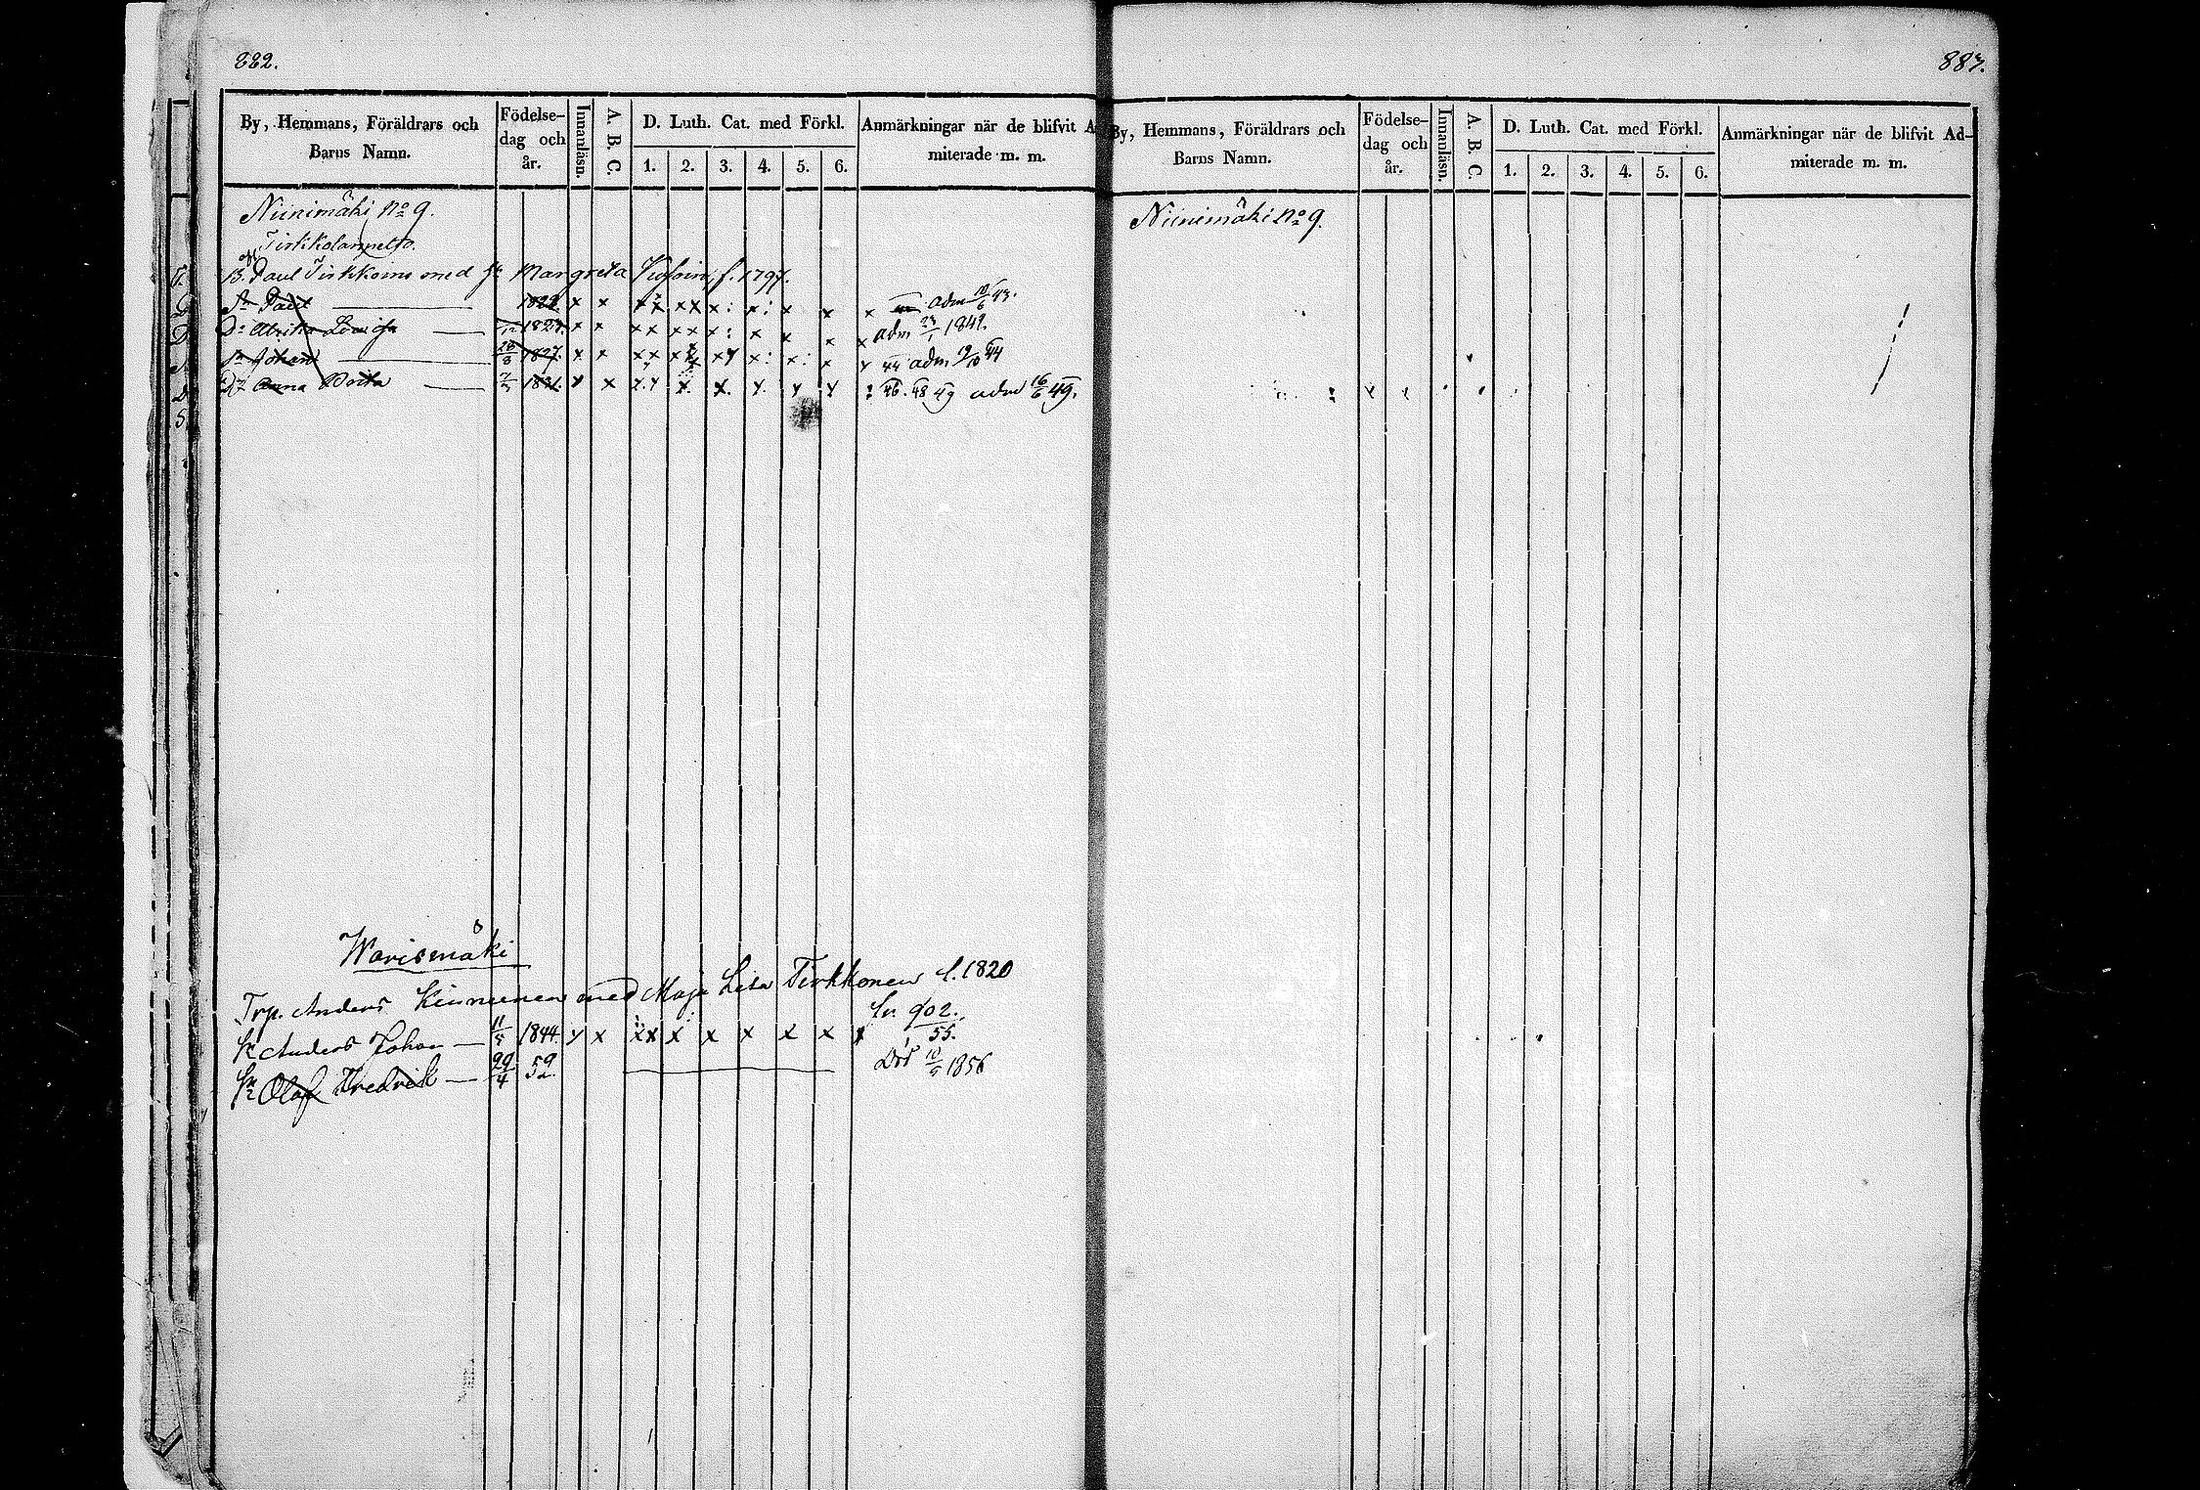 882.
By, Hemmans, Föräldrars och Barns Namn.
Födelse-dag och år.
Innanläsn.
A. B. C.
D. Luth. Cat. med Förkl.
1. 2. 3. 4. 5. 6.
Anmärkningar när de blifvit Admiterade m. m.
Niinimäki No 9.
B. Paul Tirkkoine med Hu Margreta f. 1797.
Sn Paul 1822. x x x x x x x: x: x x x adm 10/6 43.
Dr Ulrika Lovisa 1823. x x x x x x x: x x x x adm 23/1 1842.
Sn Johan 28/8 1827. x x x x x x x x: x: x x 44 adm 19/10 44
Dr Anna 1831. x x x x x. x. x. x x : 46. 48 49 adm 16/6 49.
Warismäki
Trp. Anders Kinnunen med Maja Lisa Tirkkonen f. 1820
Sn Anders Johan 11/5 1844. x x x x x x x x x fr. 902./55.
Sn Olof Fredrik 29/4 52. Död 10/5 1856
883.
By, Hemmans, Föräldrars och Barns Namn.
Födelse-dag och år.
Innanläsn.
A. B. C.
D. Luth. Cat. med Förkl.
1. 2. 3. 4. 5. 6.
Anmärkningar när de blifvit Admiterade m. m.
Niinimäki No 9.